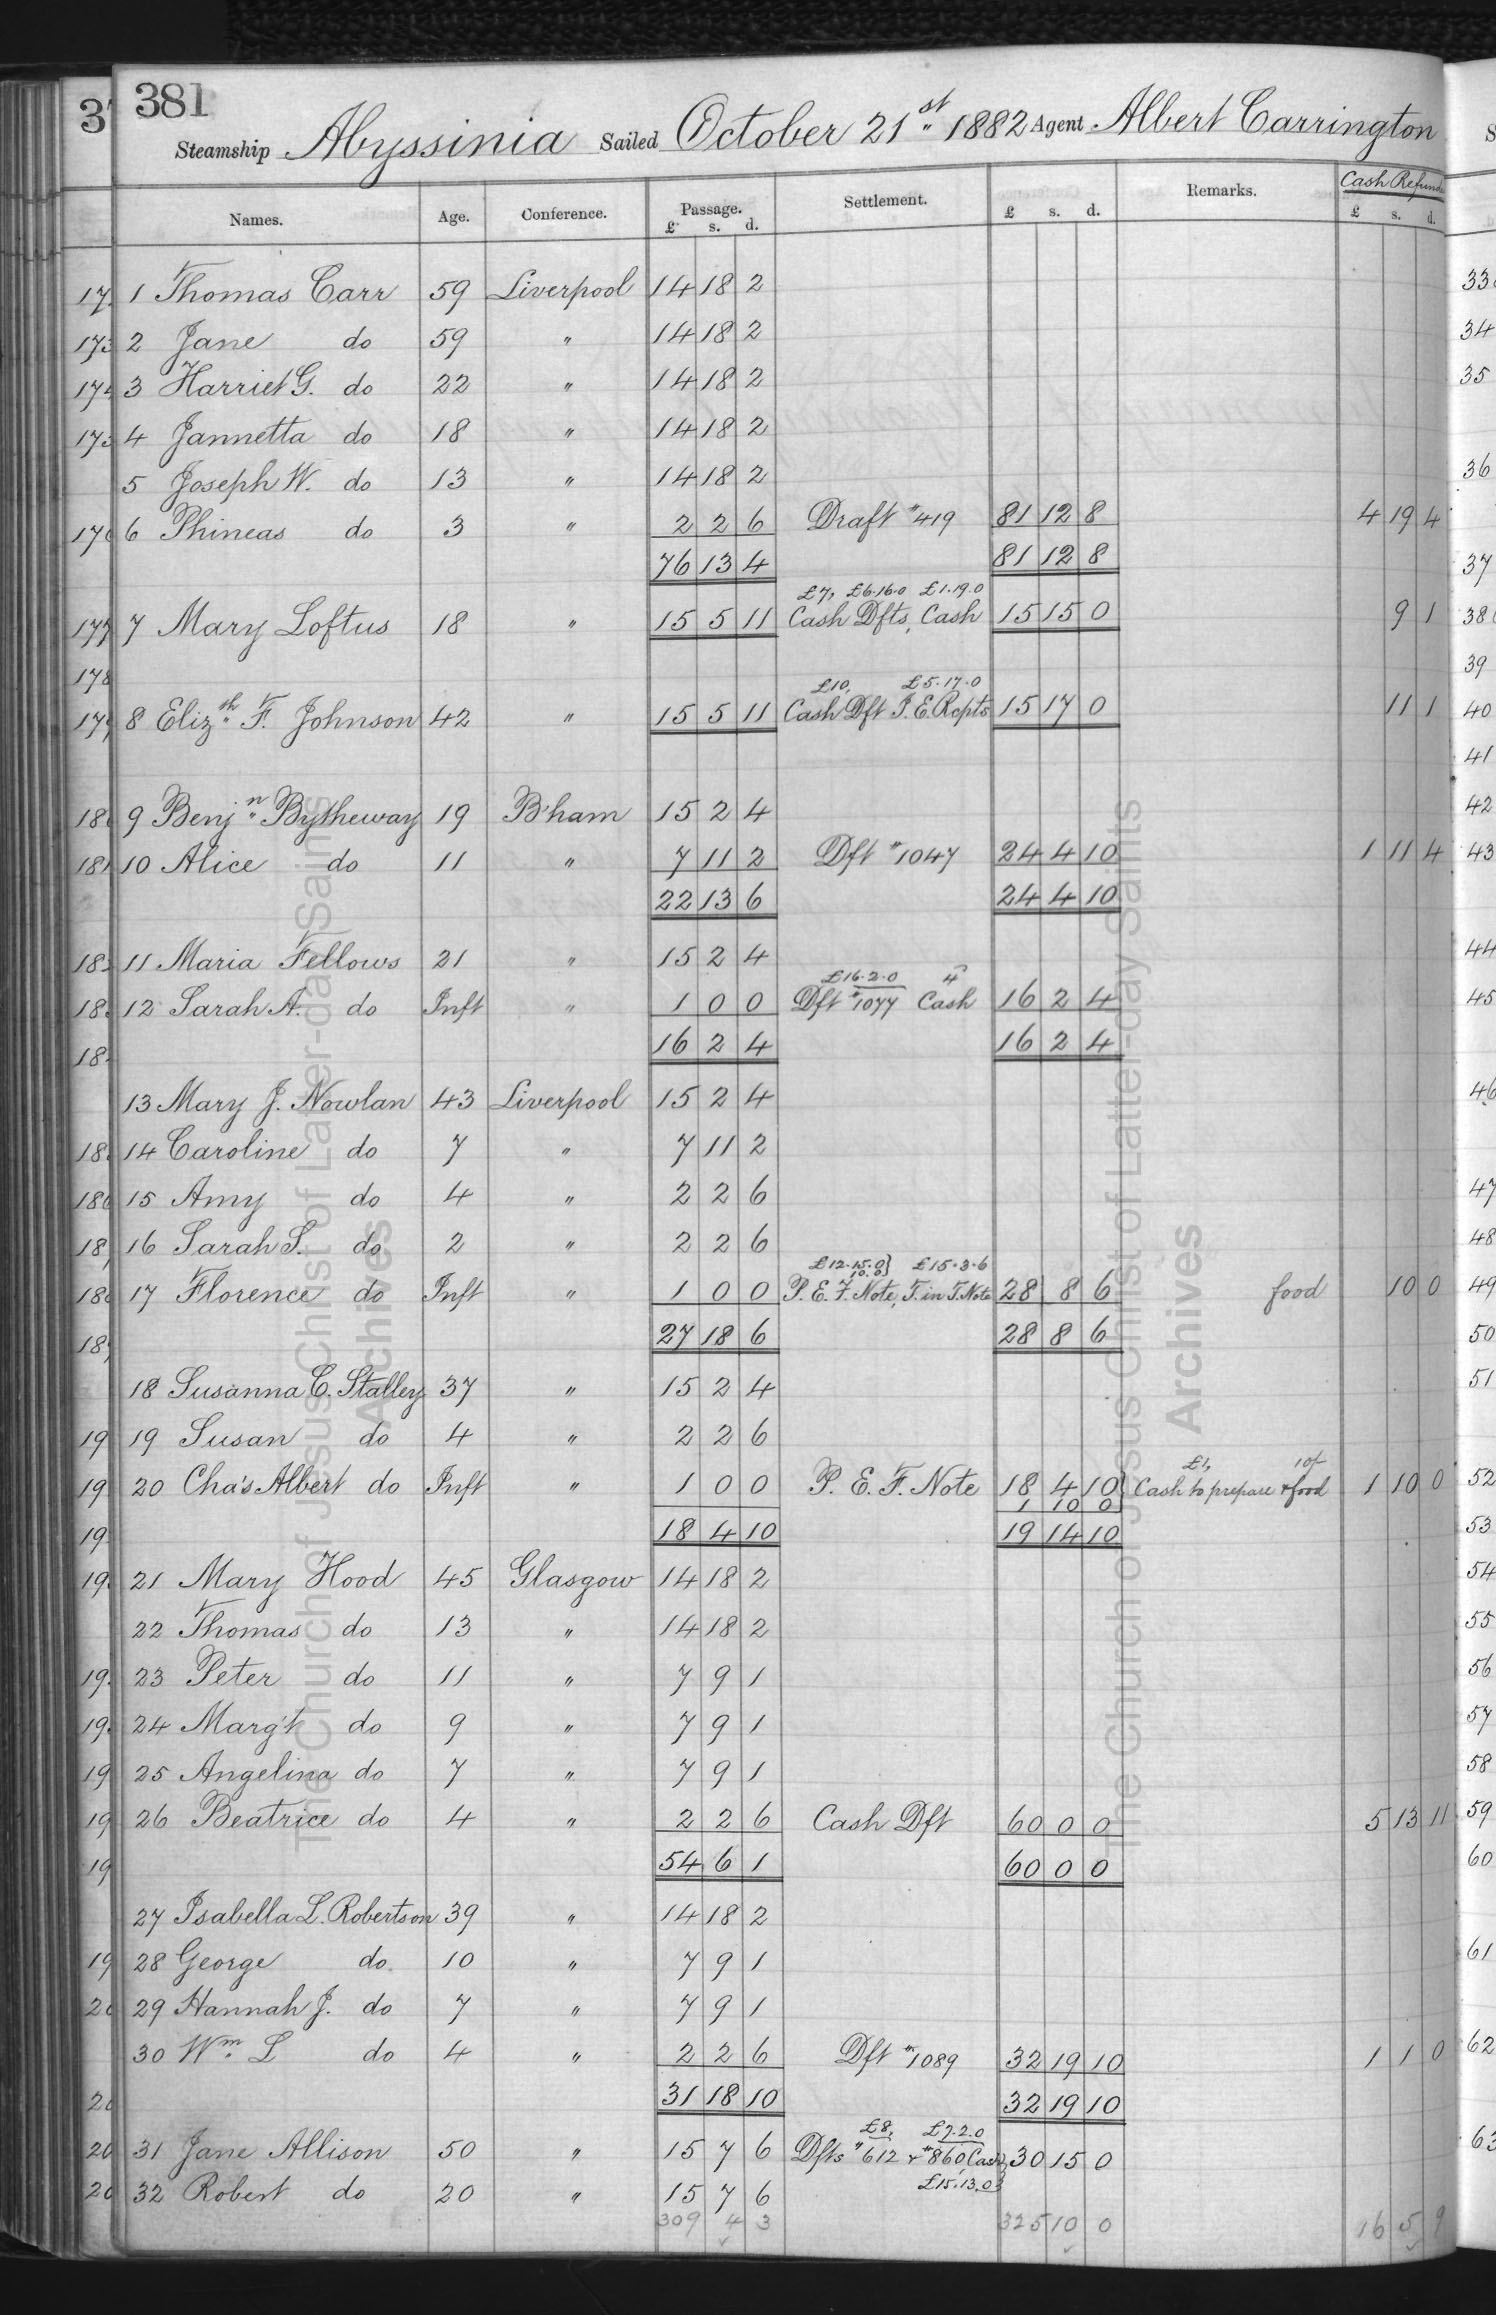 381
Steamship Abyssinia Sailed October 21st 1882 Agent Albert Carrington
Names. Age. Conference. Passage. Settlement. £ s. d. Remarks. Cash Refunds
£ s. d. £ s. d.
1 Thomas Carr 59 Liverpool 14 18 2
2 Jane do 59 " 14 18 2
3 Harriet G. do 22 " 14 18 2
4 Jannetta do 18 " 14 18 2
5 Joseph W. do 13 " 14 18 2
6 Phineas do 3 " 2 2 6 Draft #419 81 12 8 4 19 4
76 13 4 81 12 8
£7, £6.16.0 £1.19.0
7 Mary Loftus 18 " 15 5 11 Cash Dfts, Cash 15 15 0 9 1
£10, £5.17.0
8 Elizth F. Johnson 42 " 15 5 11 Cash Dft P. E. Rcpts 15 17 0 11 1
9 Benjn Bytheway 19 B'ham 15 2 4
10 Alice do 11 " 7 11 2 Dft #1047 24 4 10 1 11 4
22 13 6 24 4 10
11 Maria Fellows 21 " 15 2 4
£16.2.0 4
12 Sarah A. do Inft " 1 0 0 Dft #1077 Cash 16 2 4
16 2 4 16 2 4
13 Mary J. Nowlan 43 Liverpool 15 2 4
14 Caroline do 7 " 7 11 2
15 Amy do 4 " 2 2 6
16 Sarah S. do 2 " 2 2 6
£12.15.0} £15.3.6
10.0}
17 Florence do Inft " 1 0 0 P. E. F. Note, T. in T. Note 28 8 6 food 10 0
27 18 6 28 8 6
18 Susanna C. Stalley 37 " 15 2 4
19 Susan do 4 " 2 2 6
£1, 10/-
20 Cha's Albert do Inft " 1 0 0 P. E. F. Note 18 4 10 Cash to prepare & food 1 10 0
1 10 0
18 4 10 19 14 10
21 Mary Hood 45 Glasgow 14 18 2
22 Thomas do 13 " 14 18 2
23 Peter do 11 " 7 9 1
24 Marg't do 9 " 7 9 1
25 Angelina do 7 " 7 9 1
26 Beatrice do 4 " 2 2 6 Cash Dft 60 0 0 5 13 11
54 6 1 60 0 0
27 Isabella L. Robertson 39 " 14 18 2
28 George do. 10 " 7 9 1
29 Hannah J. do 7 " 7 9 1
30 Wm. L do 4 " 2 2 6 Dft #1089 32 19 10 1 1 0
31 18 10 32 19 10
£8, £7.2.0
31 Jane Allison 50 " 15 7 6 Dfts #612 & #860 Cash 30 15 0
£15.13.0}
32 Robert do 20 " 15 7 6
309 4 3 325 10 0 16 5 9
The Church of Jesus Christ of Latter-day Saints
Archives
The Church of Jesus Christ of Latter-day Saints
Archives